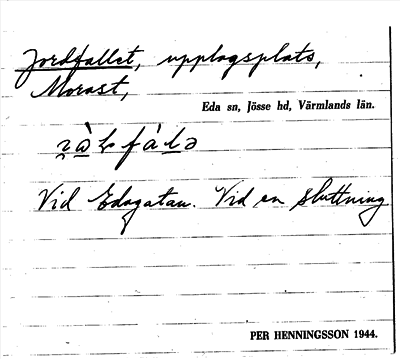 Jordfallet, upplagsplats,
Morast,
Eda sn, Jösse hd, Värmlands län.
Vid Edagatan. Vid en sluttning
PER HENNINGSSON 1944.